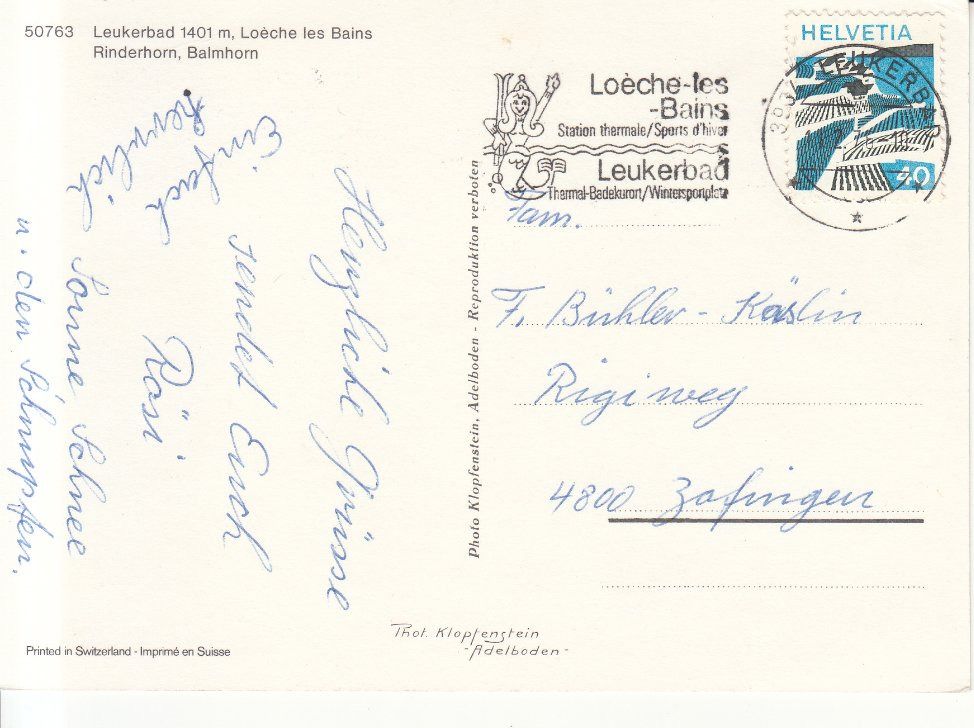 50763 Leukerbad 1401 m, Loèche les Bains
Rinderhorn, Balmhorn
HELVETIA
40
Loèche-les
-Bains
Station thermale/Sports d'hiver
Leukerbad
Thermal-Badekurort/Wintersportplatz
LEUKERBAD
Herzliche Grüsse
sendet Euch
Rösi
Einfach
herrlich
Sonne Schnee
u. den Schnupfen.
Photo Klopfenstein, Adelboden - Reproduktion verboten
Fam.
F. Bühler - Käslin
Rigiweg
4800 Zofingen
Phot. Klopfenstein
-Adelboden-
Printed in Switzerland - Imprimé en Suisse